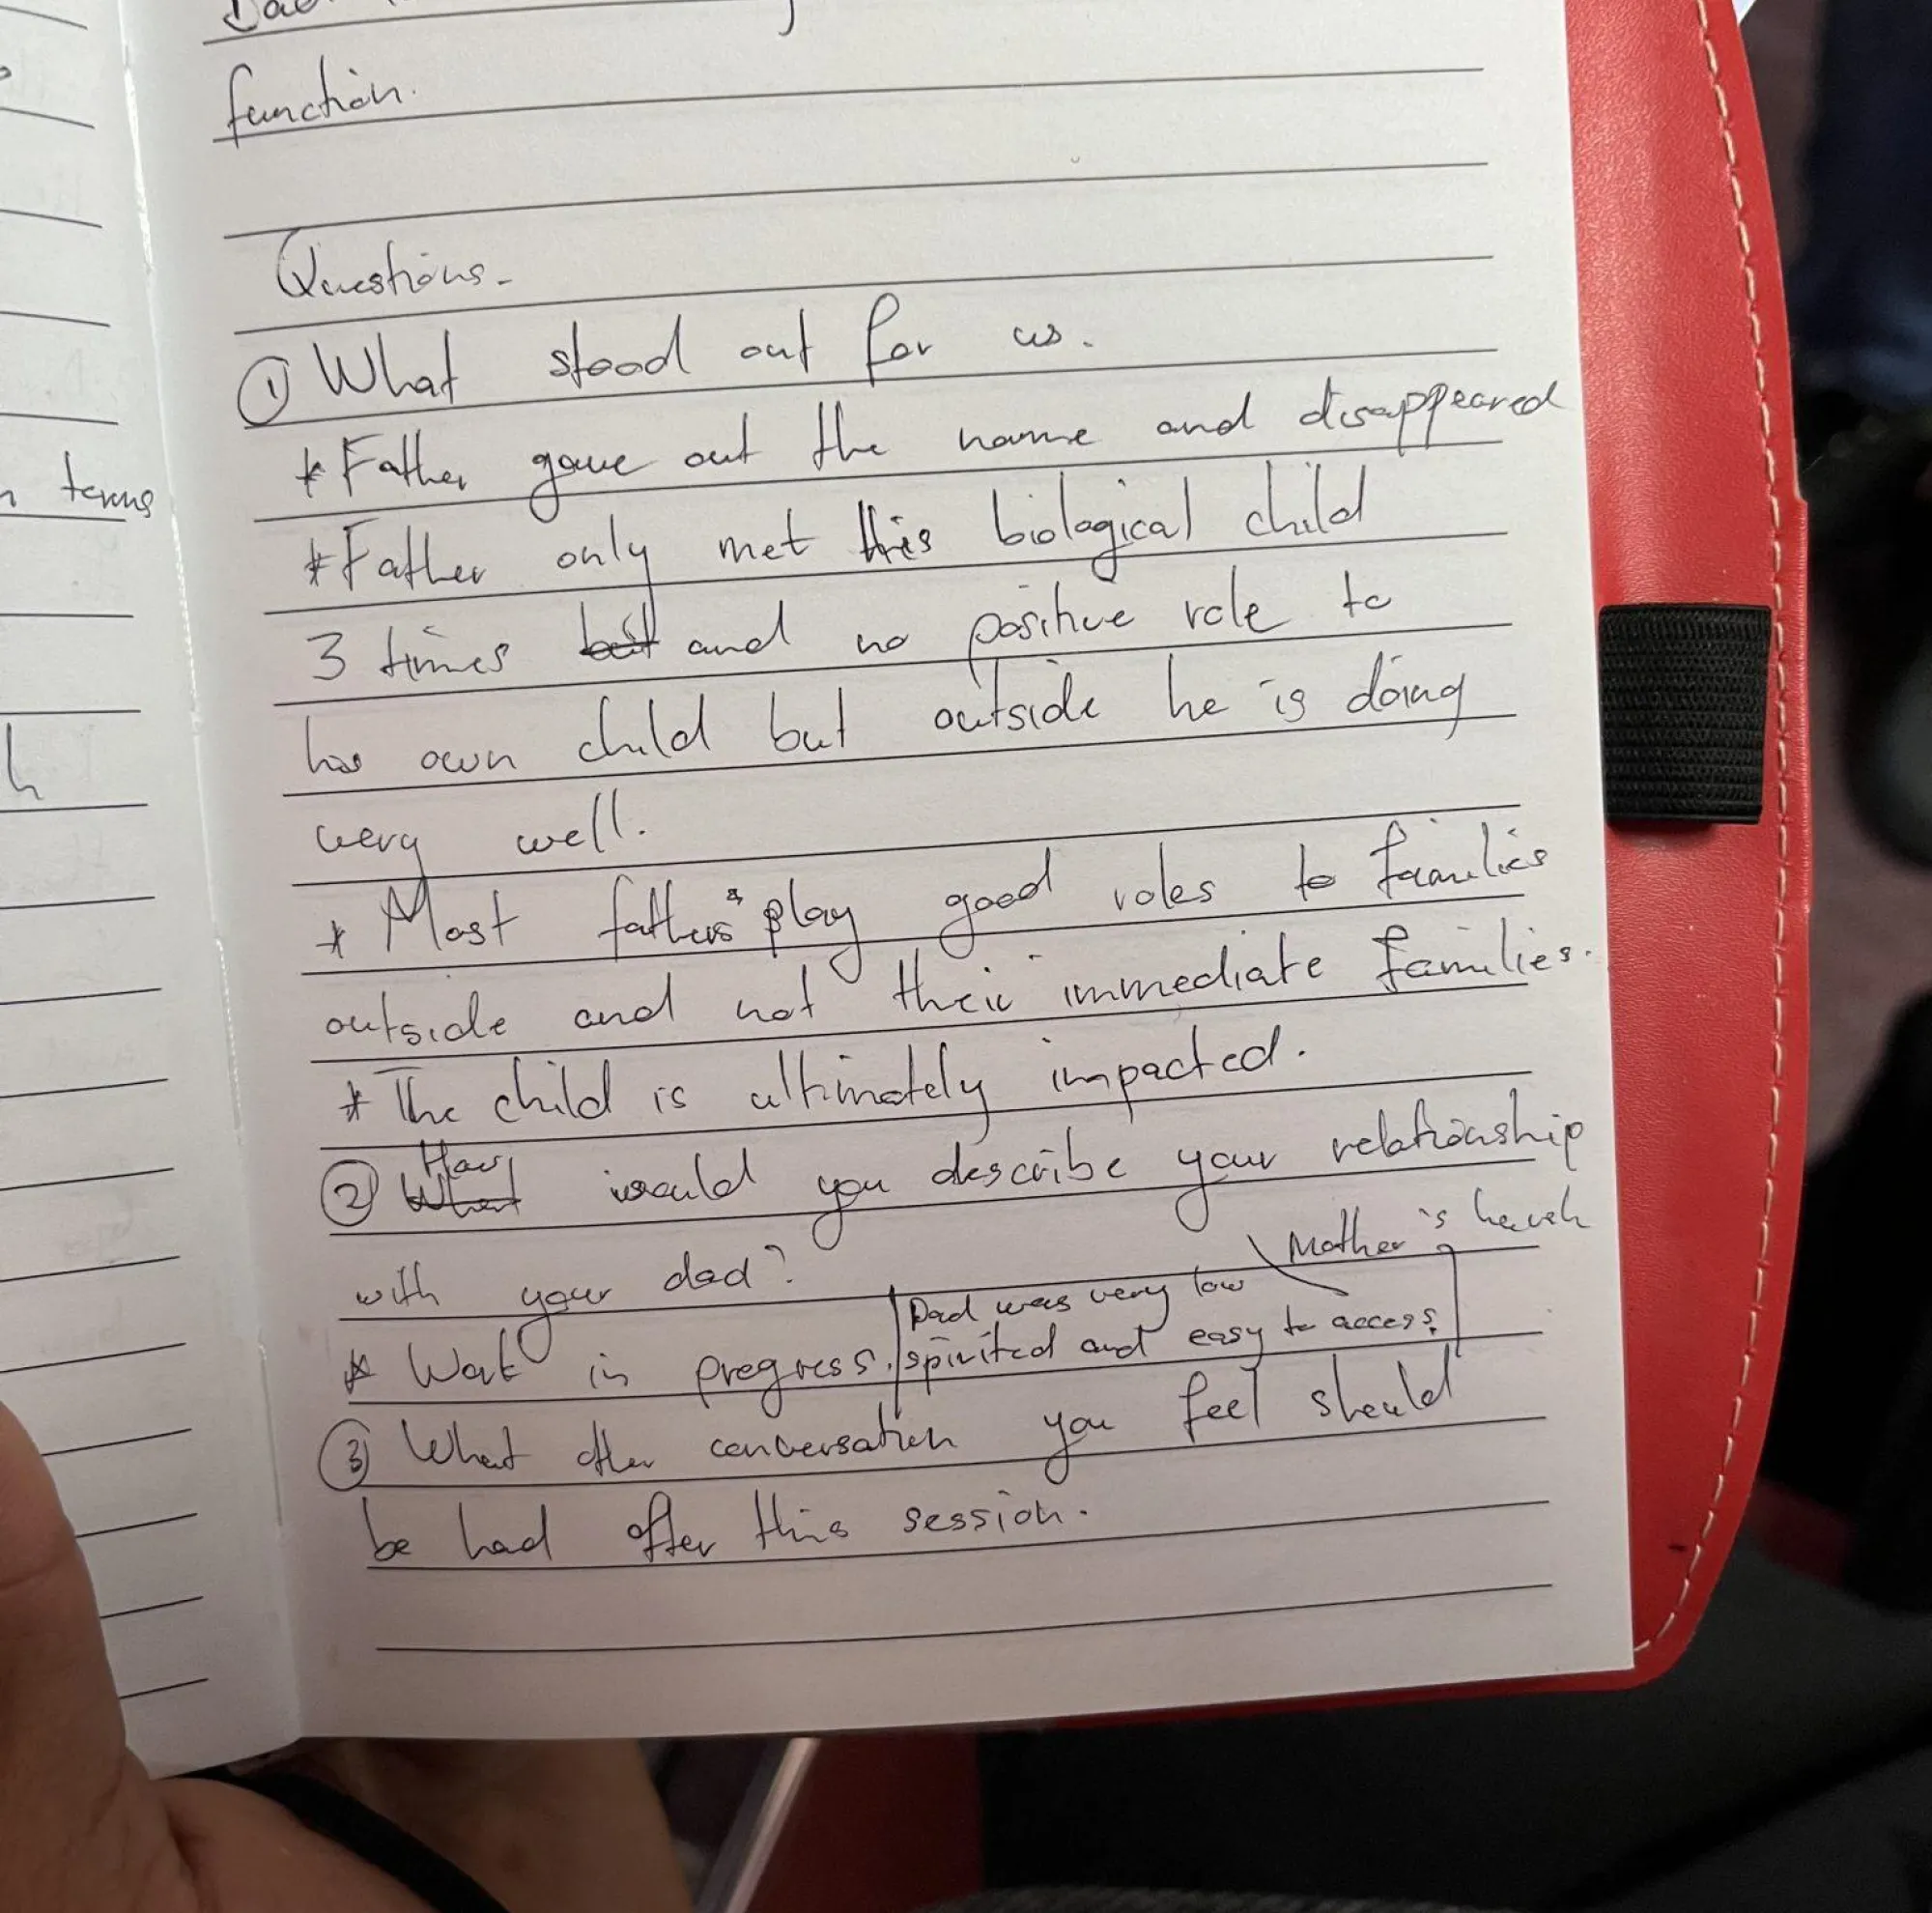 function.
Questions.
① What stood out for us.
* Father gave out the name and disappeared
* Father only met his biological child
3 times and no positive role to
his own child but outside he is doing
very well.
* Most fathers play good roles to families
outside and not their immediate families.
* The child is ultimately impacted.
② How would you describe your relationship
with your dad?
Mother is harsh
* Work in progress. Dad was very low
spirited and easy to access.
③ What other conversation you feel should
be had after this session.
terms
h